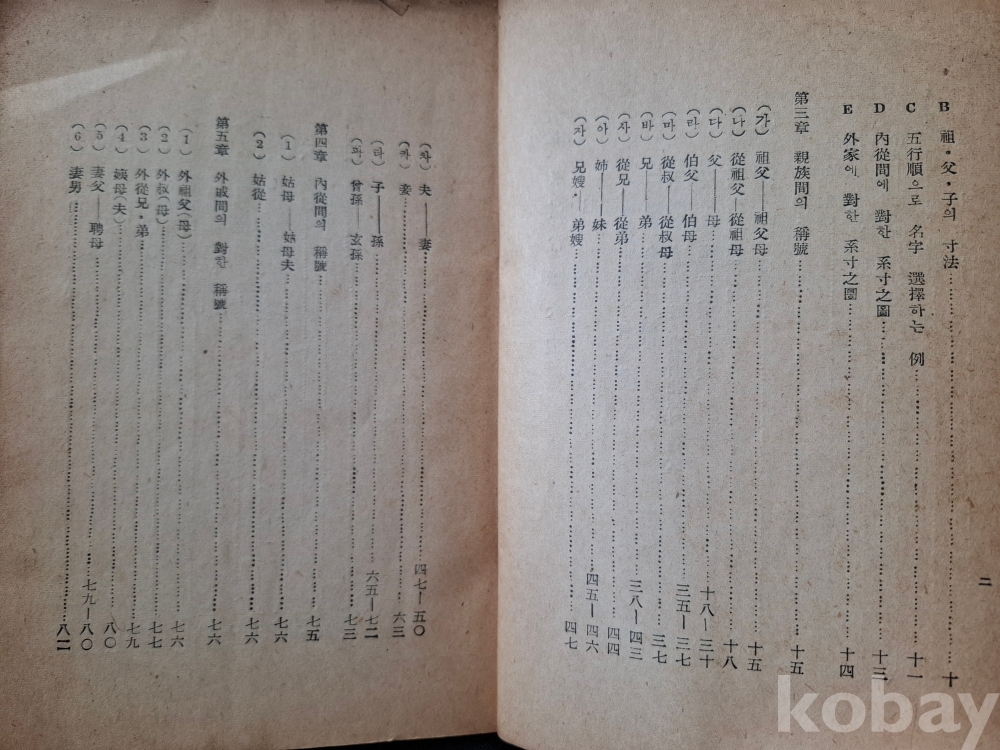 二
B 祖・父・子의 寸法 十
C 五行順으로 名字 選擇하는 例 十一
D 內從間에 對한 系寸之圖 十三
E 外家에 對한 系寸之圖 十四
第三章 親族間의 稱號 十五
(가) 祖父——祖父母 十五
(나) 從祖父—從祖母 十八
(다) 父——母 十八—三十
(라) 伯父——伯母 三五—三七
(마) 從叔——從叔母 三七
(바) 兄——弟 三八—四三
(사) 從兄——從弟 四四
(아) 姉——妹 四五—四六
(자) 兄嫂——弟嫂 四七
(차) 夫——妻 四七—五〇
(카) 妻 六三
(타) 子——孫 六五—七二
(파) 曾孫 玄孫 七三
第四章 內從間의 稱號 七五
(1) 姑母——姑母夫 七六
(2) 姑從 七六
第五章 外戚間의 對한 稱號 七六
(1) 外祖父(母) 七六
(2) 外叔(母) 七七
(3) 外從兄・弟 七九
(4) 姨母(夫) 八〇
(5) 妻父——聘母 七九—八〇
(6) 妻男 八二
kobay